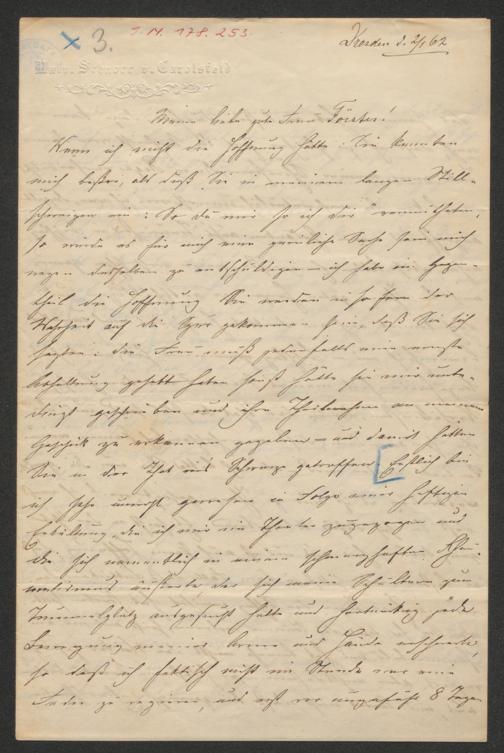 3.
I.N. 178.253
Dresden d. 2/1 62
Malv. Schnorr v. Carolsfeld
Meine liebe gute Frau Förster!
Wenn ich nicht die Hoffnung hätte: Sie kennten
mich besser, als daß Sie in meinem langen Still-
schweigen ein: So du mir so ich dir vermutheten,
so würde es für mich eine peinliche Sache sein mich
wegen desselben zu entschuldigen – ich habe im Gegen-
theil die Hoffnung Sie werden in so fern der
Wahrheit auf die Spur gekommen sein, daß Sie sich
sagten: die Frau muß jedenfalls eine ernste
Abhaltung gehabt haben sonst hätte sie mir unbe-
dingt geschrieben und ihre Theilnahme an meinem
Geschick zu erkennen gegeben – und damit hätten
Sie in der That in's Schwarze getroffen. Erstlich bin
ich sehr unwohl gewesen in Folge einer heftigen
Erkältung, die ich mir im Theater zugezogen und
die sich namentlich in einem schmerzhaften Rheu-
matismus äußerte, der sich meine Schultern zum
Tummelplatz ausgesucht hatte und hartnäckig jede
Bewegung meiner Arme und Hände erschwerte,
so daß ich faktisch nicht im Stande war eine
Feder zu regieren, und erst vor ungefähr 8 Tagen